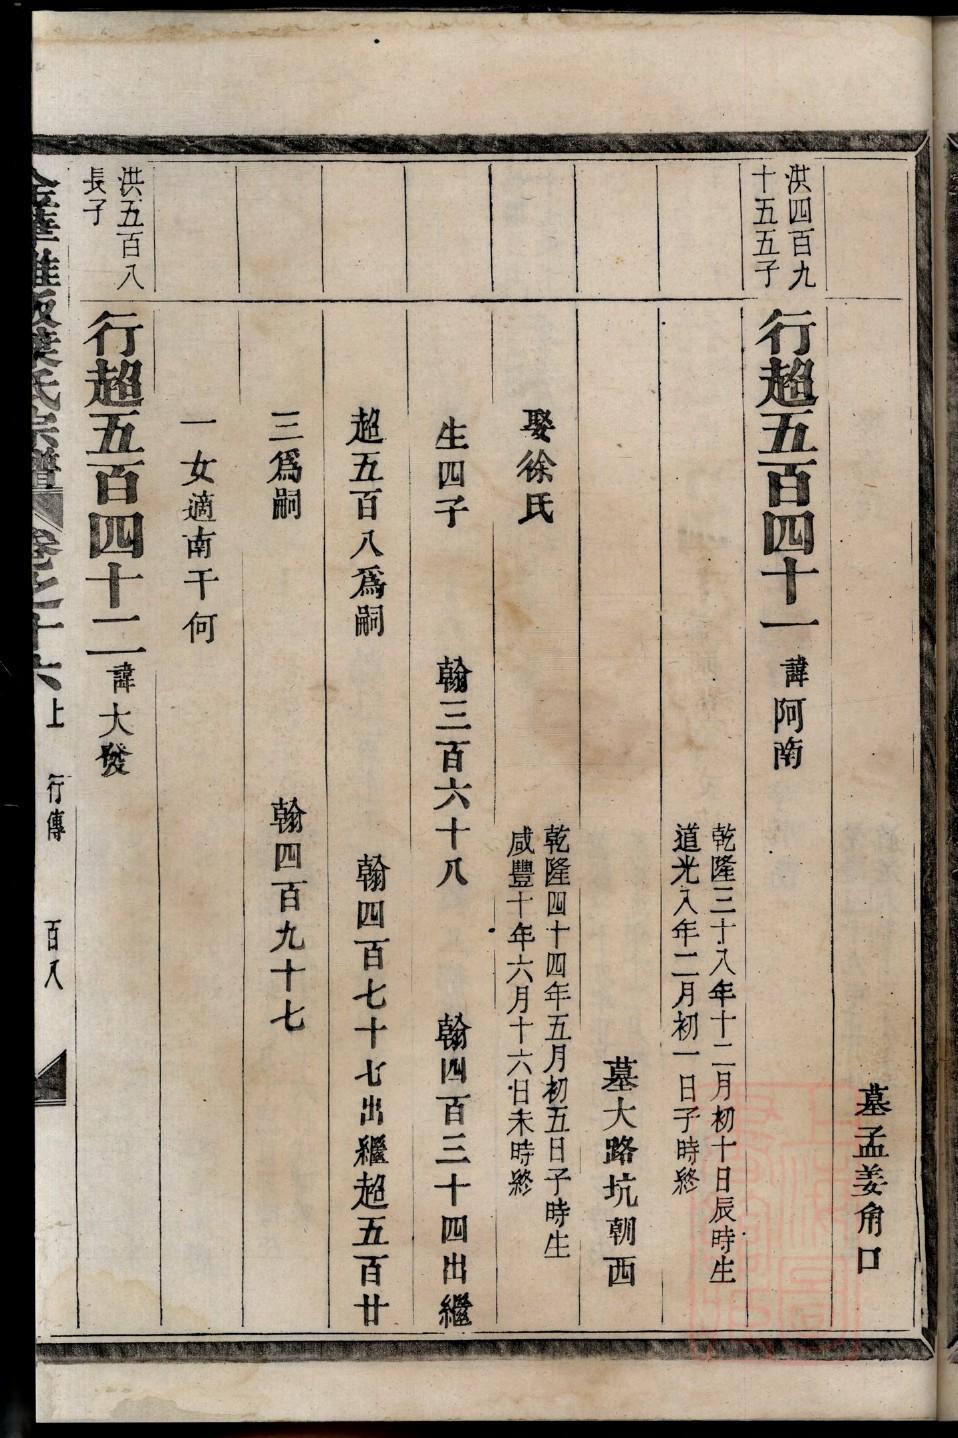 墓孟姜角口
洪四百九
十五五子
行超五百四十一 諱阿南
乾隆三十八年十二月初十日辰時生
道光八年二月初一日子時終
墓大路坑朝西
娶徐氏
乾隆四十四年五月初五日子時生
咸豐十年六月十六日未時終
生四子 翰三百六十八 翰四百三十四出繼
超五百八爲嗣 翰四百七十七出繼超五百廿
三爲嗣 翰四百九十七
一女適南干何
洪五百八
長子
行超五百四十二 諱大發
氏宗譜 卷之十六上 行傳 百八